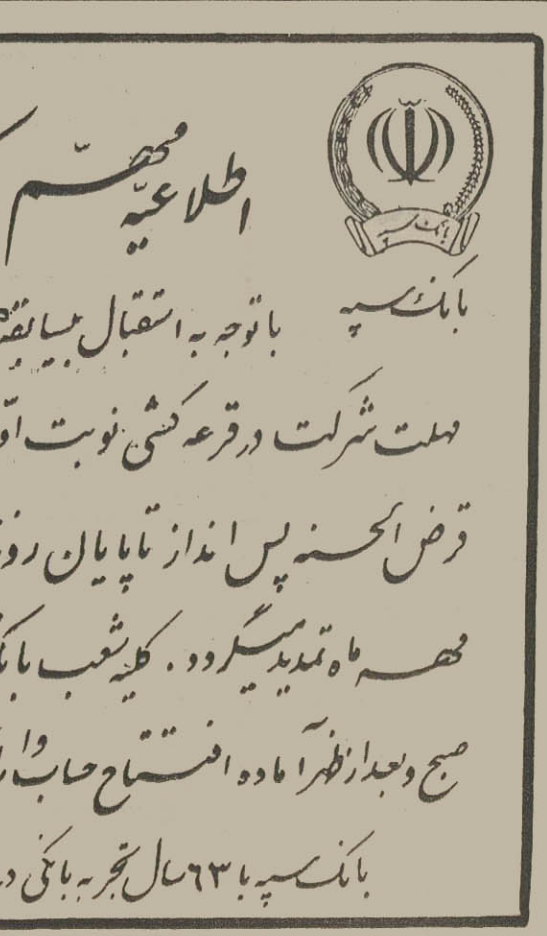 اطلاعیّه مهمّ
بانک سپه
بانک سپه
باتوجه به استقبال بیسابقه
مهلت شرکت در قرعه کشی نوبت اوّ
قرض الحسنه پس انداز تا پایان روز
مهـــر ماه تمدید میگردد. کلیه شعب بانک
صبح و بعداز ظهر آماده افتـــتاح حساب و ا
بانک سپه با ۶۳ سال تجربه بانکی در